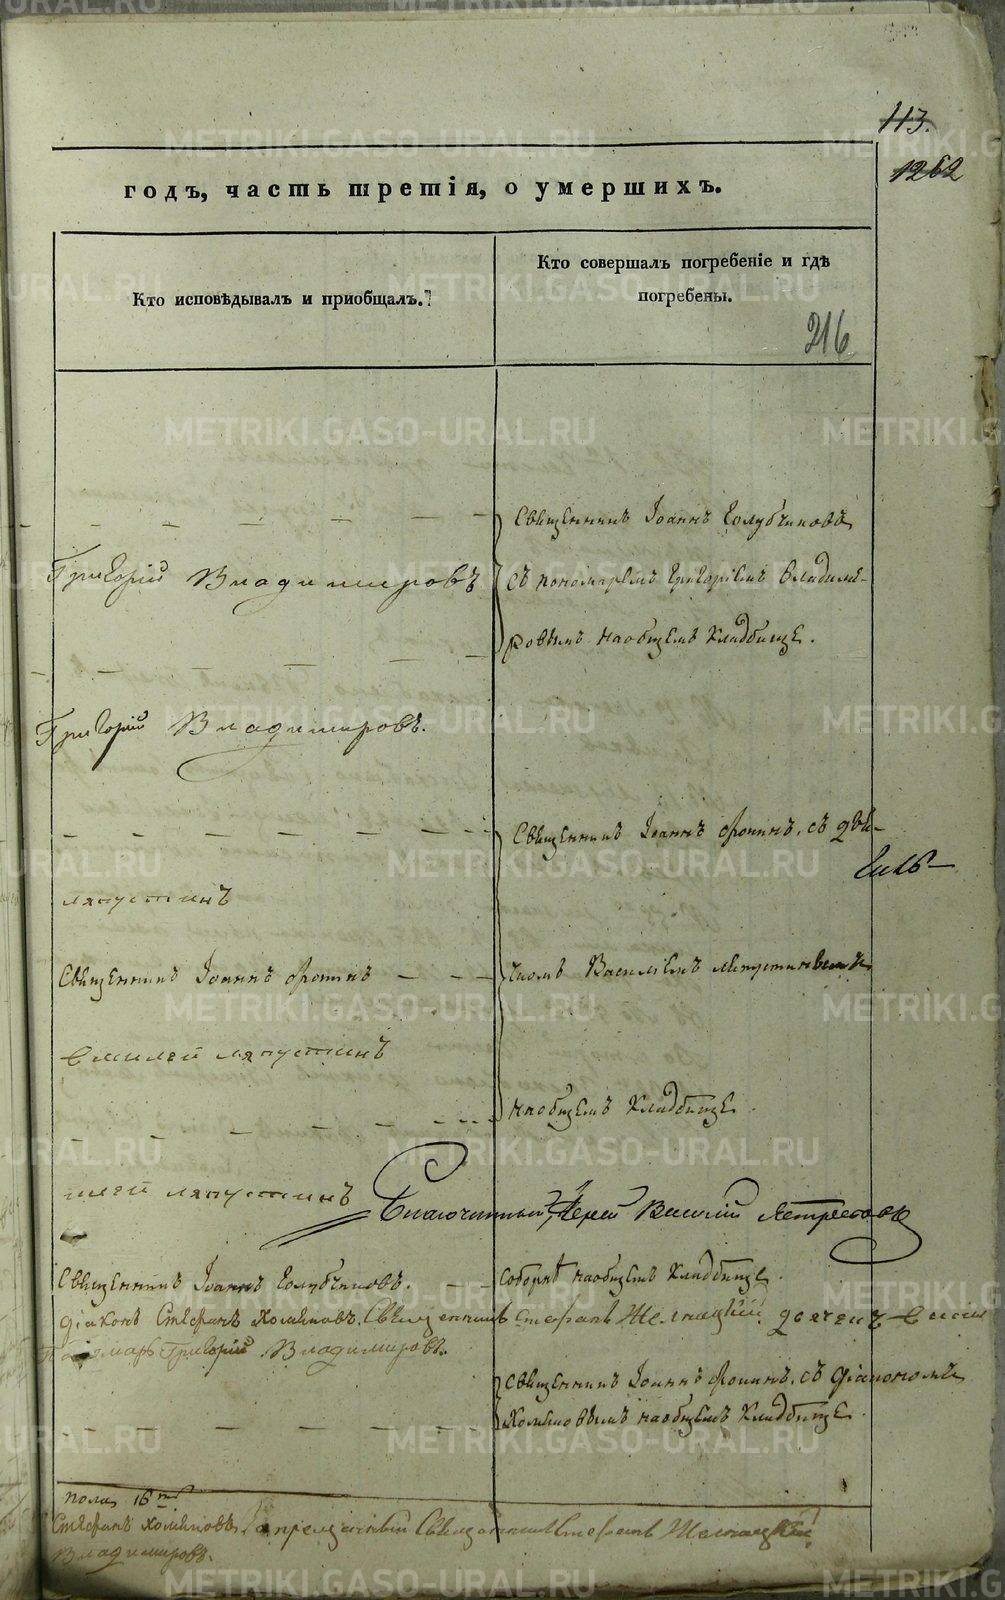 113.
1262
годъ, часть третія, о умершихъ.
Кто исповѣдывалъ и приобщалъ.
Кто совершалъ погребеніе и гдѣ
погребены.
216
Священникъ Іоаннъ Голубчиковъ
Григорій Владимировъ
съ пономаремъ Григоріемъ Владими-
ровымъ на общемъ кладбище.
Григорій Владимировъ.
Священникъ Іоаннъ Фокинъ, съ
ляпустинъ
Священникъ Іоаннъ Фокинъ
Василіемъ Ляпустинымъ
ляпустинъ
на общемъ кладбище
ляпустинъ
Благочинный, Іерей Василій
Священникъ Іоаннъ Голубчиковъ.
соборнѣ на общемъ кладбище.
діаконъ Стефанъ Хомяковъ. Священникъ Стефанъ
Пономарь Григорій Владимировъ.
Священникъ Іоаннъ Фокинъ, съ діакономъ
Хомяковымъ на общемъ кладбище.
пола 16
Стефанъ Хомяковъ. Священникъ Стефанъ
Владимировъ.
METRIKI.GASO-URAL.RU